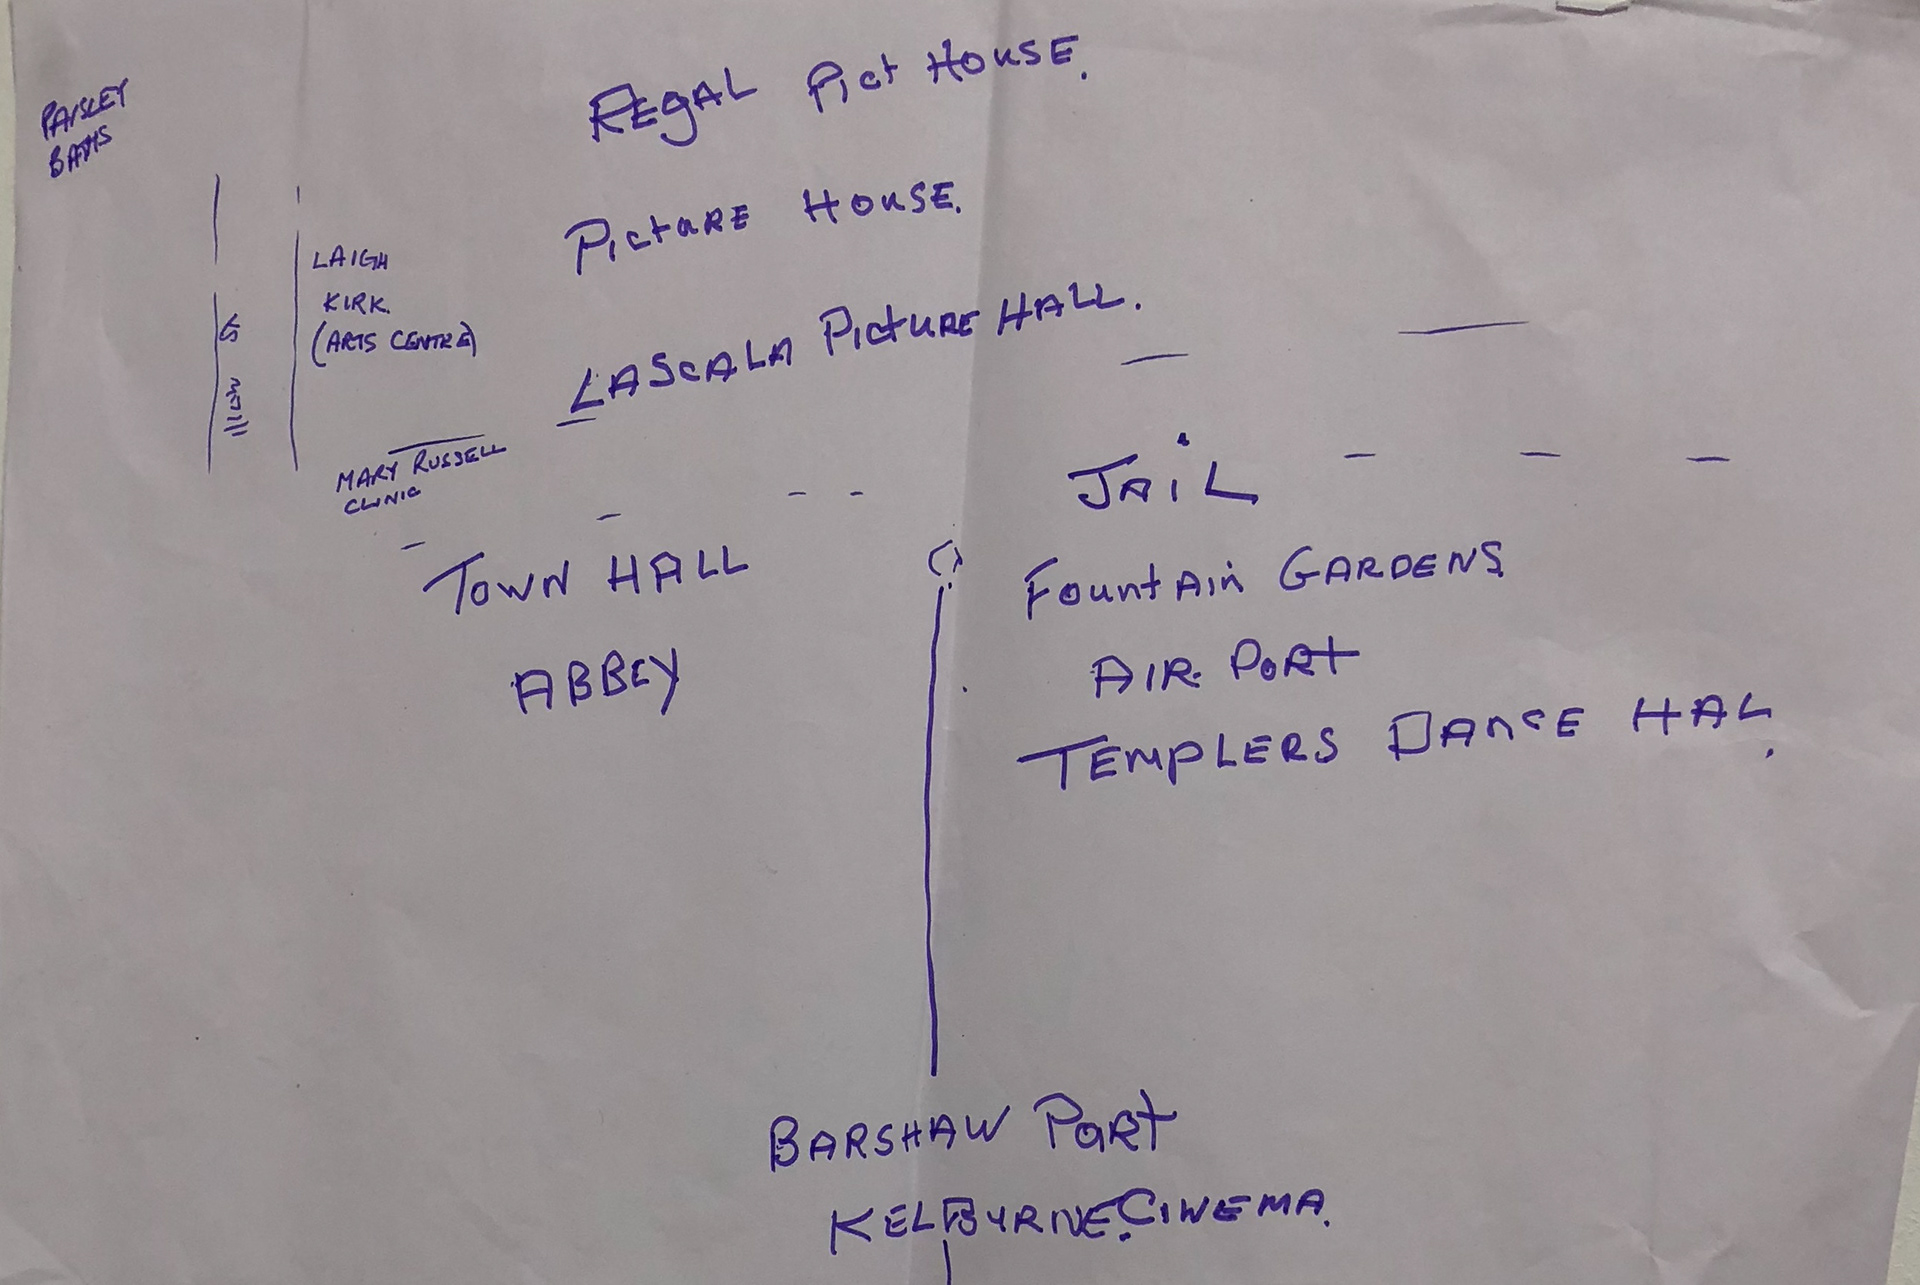 PAISLEY
BATHS
REGAL Pict HOUSE.
PictURE HOUSE.
LAIGH
KIRK.
(ARTS CENTRE)
LASCALA PictURE HALL.
MARY RUSSELL
CLINIC
JAIL
TOWN HALL
FountAin GARDENS
ABBEY
AIR. PORT
TEMPLERS DANCE HAL
BARSHAW PARt
KELBYRNE. CINEMA.